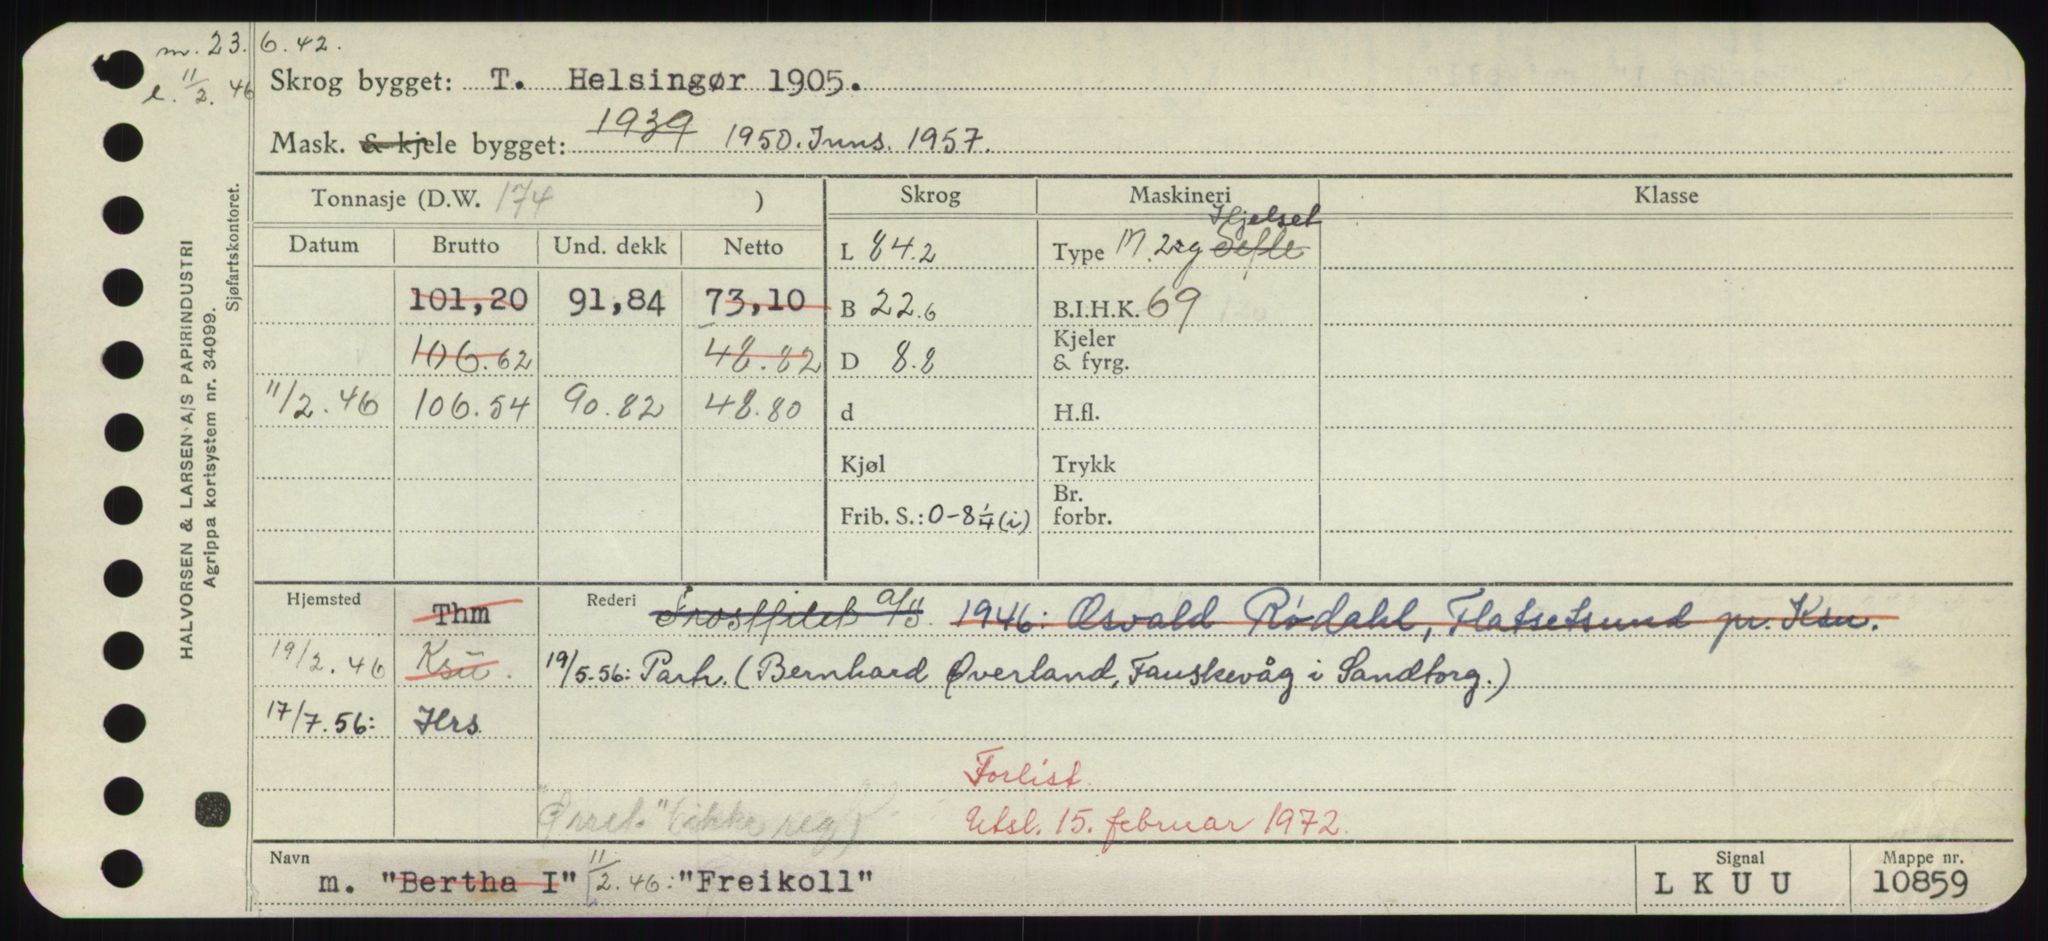 m. 23.6.42.
l. 11/2.46
Skrog bygget: T. Helsingør 1905.
Mask. & kjele bygget: 1939 1950. Inns. 1957.
HALVORSEN & LARSEN A/S PAPIRINDUSTRI
Agrippa kortsystem nr. 34099.
Sjøfartskontoret.
Tonnasje (D.W. 174 ) Skrog Maskineri Klasse
Hjelset
Datum Brutto Und. dekk Netto L 84.2 Type M. 2sg
101,20 91,84 73,10 B 22.6 B.I.H.K. 69
106.62 48.82 D 8.8 Kjeler & fyrg.
11/2.46 106.54 90.82 48.80 d H.fl.
Kjøl Trykk
Frib. S.: 0-8 1/4 (i) Br. forbr.
Hjemsted Thm Rederi Frostfilet A/S. 1946: Osvald Rødahl, Flatsetsund pr. Ksu.
19/2.46 Ksu. 19/5-56: Parh. (Bernhard Øverland, Fauskevåg i Sandtorg.)
17/7.56: Hrs.
Forlist.
(ikke reg.) Utsl. 15. februar 1972.
Navn m. "Bertha I" 11/2.46: "Freikoll" Signal LKUU Mappe nr. 10859